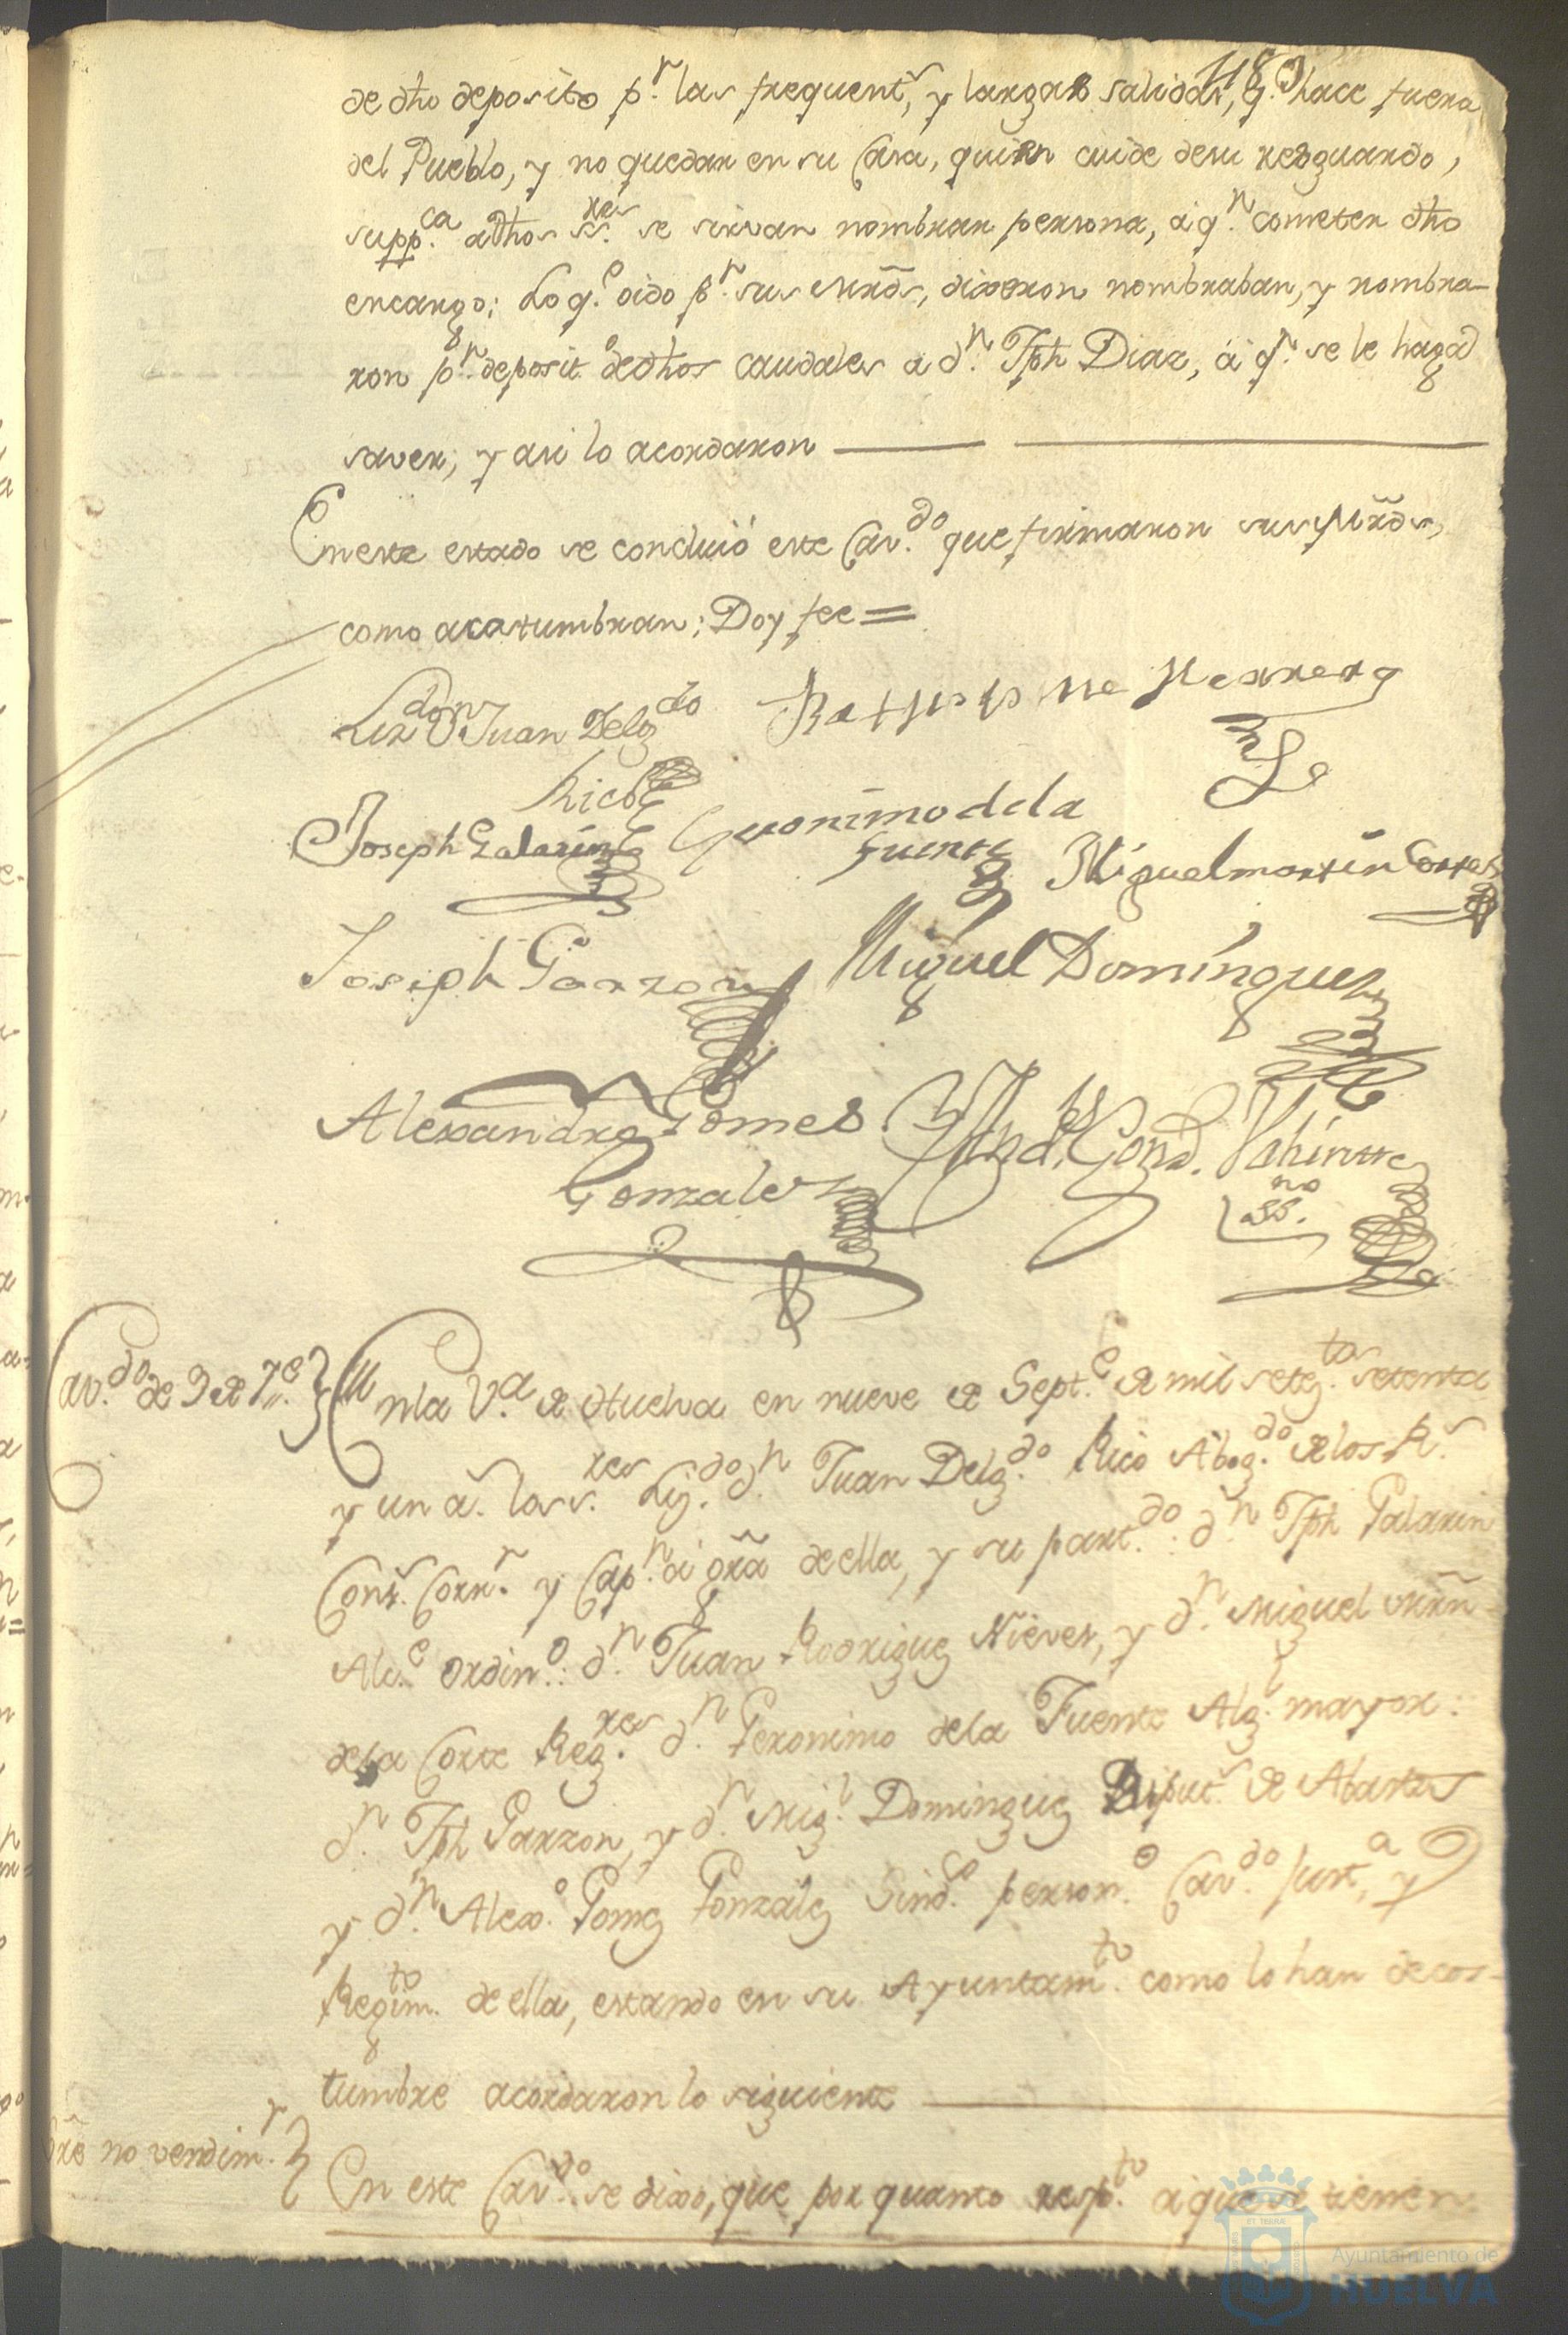 48
de dho deposito pr. las frequents, y largas salidas, q. hace fuera
del Pueblo, y no quedar en su Casa, quien cuide de su resguardo,
suppca. a dhos ssres. se sirvan nombrar persona, á qn. cometer dho
encargo; Lo qe. oido pr. sus Mrds, dixeron nombraban, y nombra-
ron pr. deposito. de dhos caudales a dn. Jph Diaz, á qn. se le haga
saver; y asi lo acordaron
En este estado se concluió este Cavdo. que firmaron sus Mrds,
como acostumbran; Doy fee =
Lizdo don Juan Delgdo
Rico
Herrera
Joseph Galarin
Geronimo de la
Fuente
Miguel martin Cortes
Joseph Garzon
Miguel Dominguez
Alexandro Gomes
Gonzales
sno.
Cavdo. de 9 de 7e.
En la Va. de Huelva en nueve de Septe. de mil seteztos. setenta
y un as. los ssres. Lizdo. dn. Juan Delgdo. Rico Abogdo. de los Rs.
Cons. Corrr. y Capn. á grã de ella, y su partdo.: dn. Jph Galarin
Alce. ordino.: dn. Juan Rodriguez Nieves, y dn. Miguel Mrñ
de la Corte Regres. dn. Geronimo de la Fuente Algl. mayor:
dn. Jph Garzon, y dn. Migl. Dominguez Diputs. de Abastos
y dn. Alexo. Gomez Gonzalez Sindco. persono. Cavdo. justa, y
Regimto. de ella, estando en su Ayuntamto. como lo han de cos-
tumbre acordaron lo siguiente
bre no vendimr.
En este Cavdo. se dixo, que por quanto respto. a que se tienen
ET TERRA
Ayuntamiento de
HUELVA